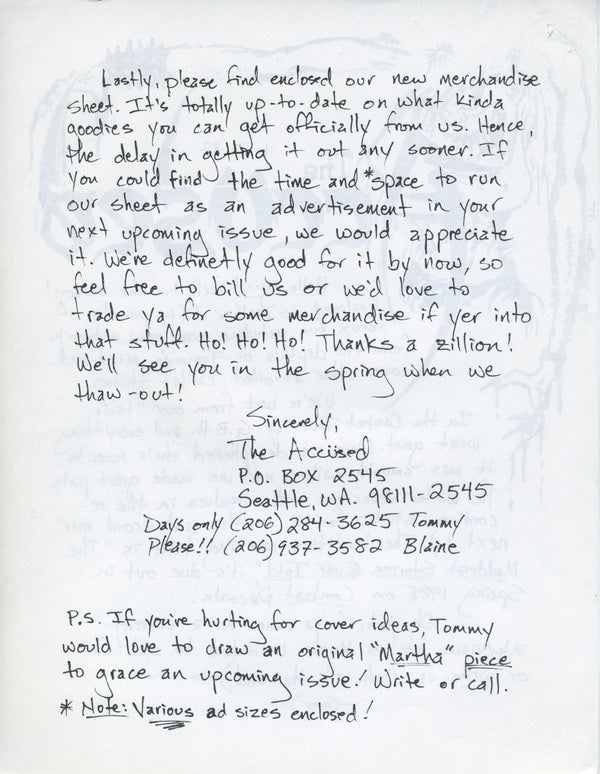 Lastly, please find enclosed our new merchandise
sheet. It's totally up-to-date on what kinda
goodies you can get officially from us. Hence,
the delay in getting it out any sooner. If
you could find the time and *space to run
our sheet as an advertisement in your
next upcoming issue, we would appreciate
it. We're definetly good for it by now, so
feel free to bill us or we'd love to
trade ya for some merchandise if yer into
that stuff. Ho! Ho! Ho! Thanks a zillion!
We'll see you in the spring when we
thaw-out!
Sincerely,
The Accüsed
P.O. BOX 2545
Seattle, WA. 98111-2545
Days only (206) 284-3625 Tommy
Please!! (206) 937-3582 Blaine
P.S. If you're hurting for cover ideas, Tommy
would love to draw an original "Martha" piece
to grace an upcoming issue! Write or call.
* Note: Various ad sizes enclosed!